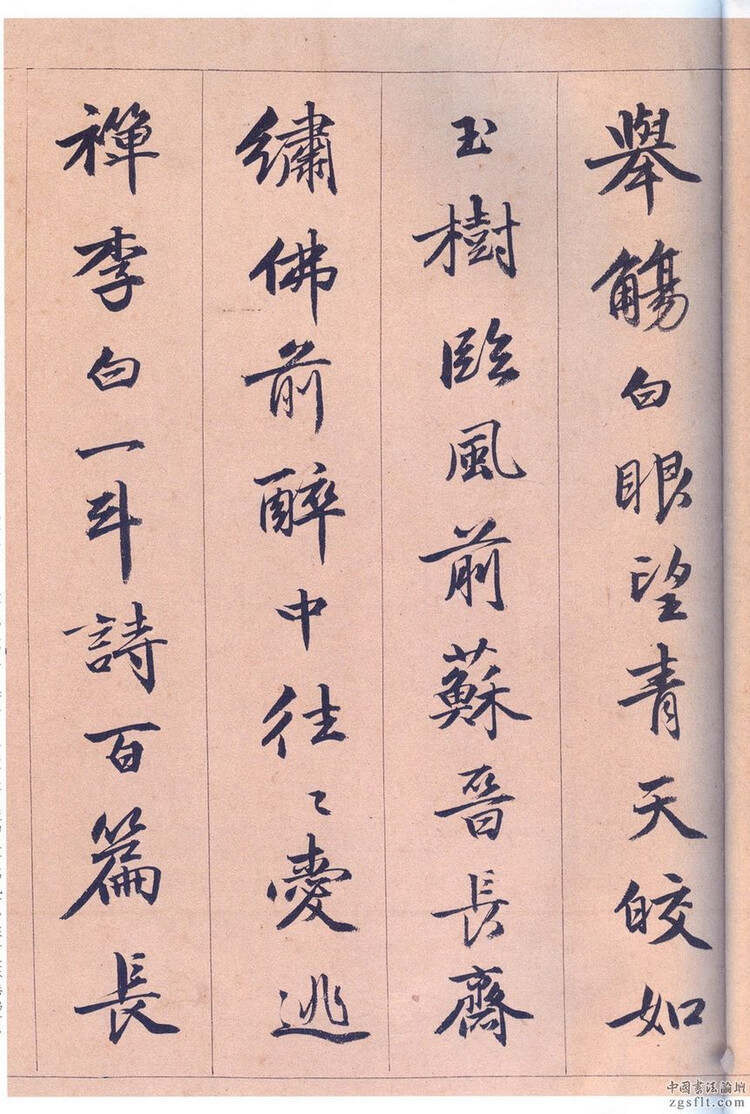 舉觴白眼望青天皎如
玉樹臨風前蘇晉長齋
繡佛前醉中往〻愛逃
禪李白一斗詩百篇長
中國書法論壇
zgsflt.com